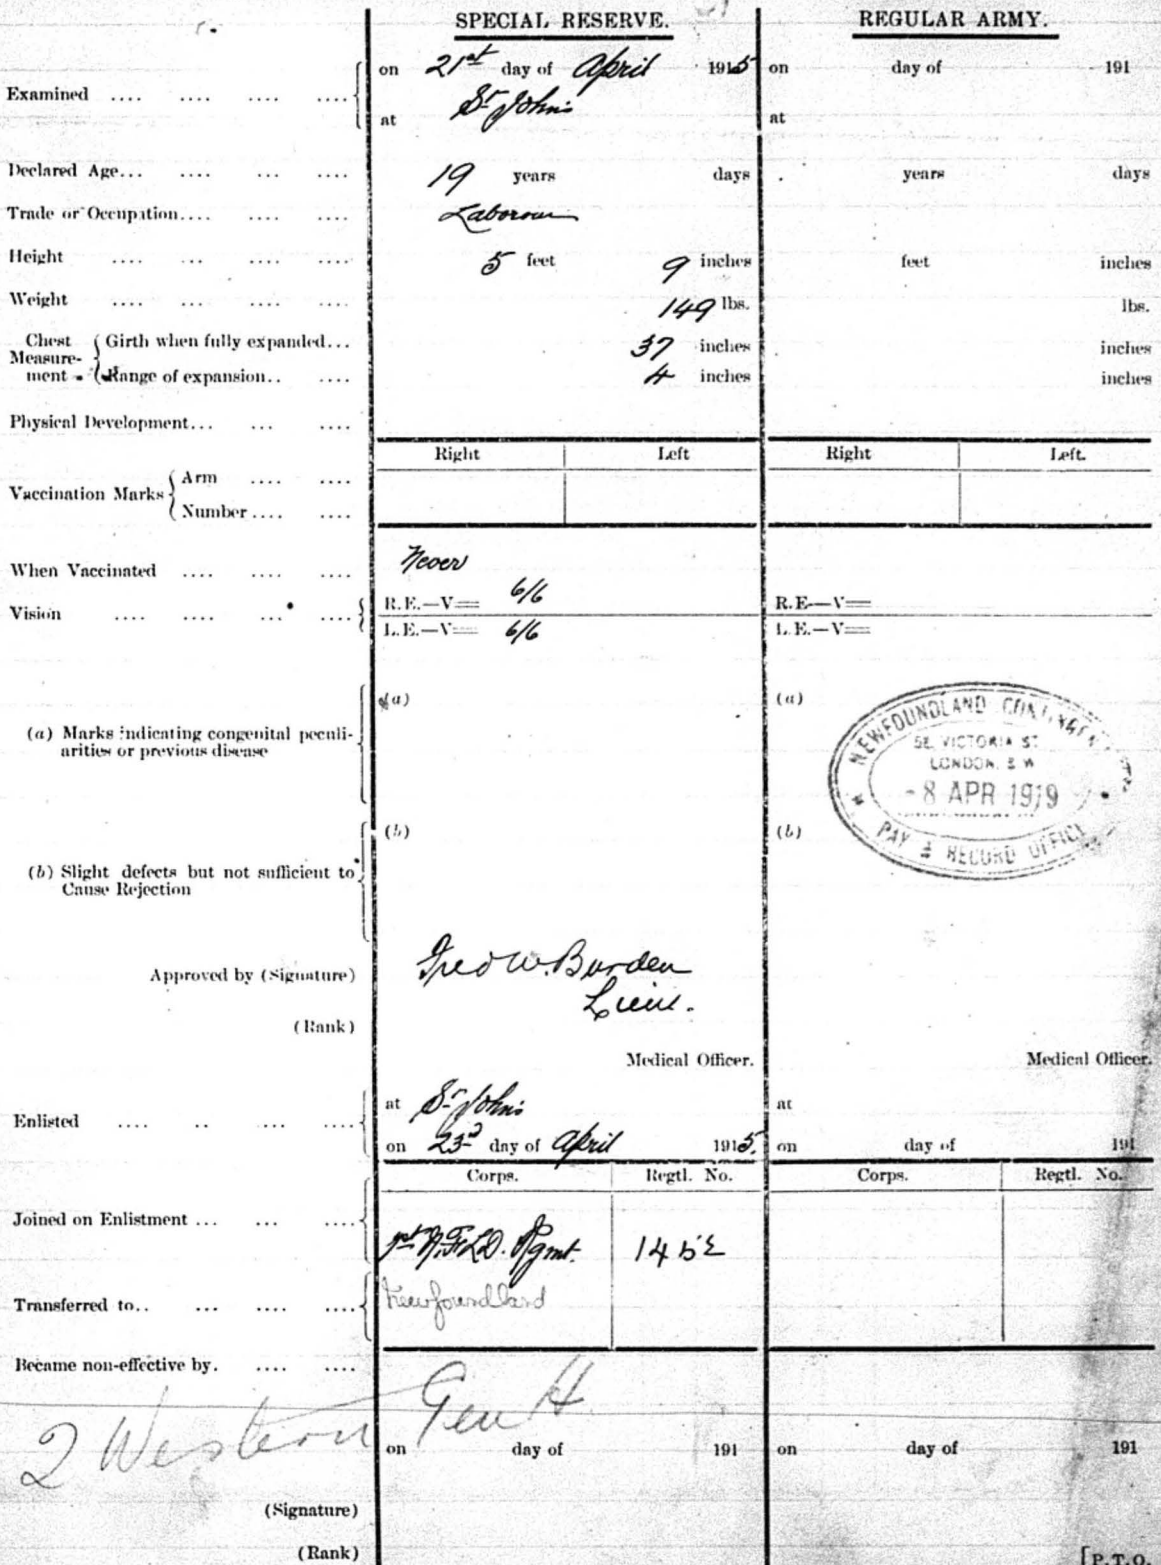 SPECIAL RESERVE. REGULAR ARMY.
Examined .... .... .... .... on 21st day of April 1915 on day of 191
at St John's at
Declared Age... .... ... .... 19 years days years days
Trade or Occupation.... .... .... Labourer
Height .... ... .... .... 5 feet 9 inches feet inches
Weight .... .... .... .... 149 lbs. lbs.
Chest Measurement Girth when fully expanded... 37 inches inches
Range of expansion.. .... 4 inches inches
Physical Development... ... ....
Right Left Right Left.
Vaccination Marks Arm .... ....
Number .... ....
When Vaccinated .... .... .... Never
Vision .... .... ... .... R.E.—V= 6/6 R.E—V=
L.E.—V= 6/6 L.E.—V=
(a) Marks indicating congenital peculi-
arities or previous disease
(a) (a)
NEWFOUNDLAND CONTINGENT
58, VICTORIA ST
LONDON, S W
-8 APR 1919
PAY & RECORD OFFICE
(b) Slight defects but not sufficient to
Cause Rejection
(b) (b)
Approved by (Signature) Fred W. Burden
Lieut.
(Rank)
Medical Officer. Medical Officer.
Enlisted .... .. ... .... at St John's at
on 23d day of April 1915. on day of 191
Corps. Regtl. No. Corps. Regtl. No.
Joined on Enlistment ... ... .... 1st N.FLD. Rgmt. 1452
Transferred to.. ... .... .... Newfoundland
Became non-effective by. .... ....
2 Western Gen H
on day of 191 on day of 191
(Signature)
(Rank)
[P.T.O.